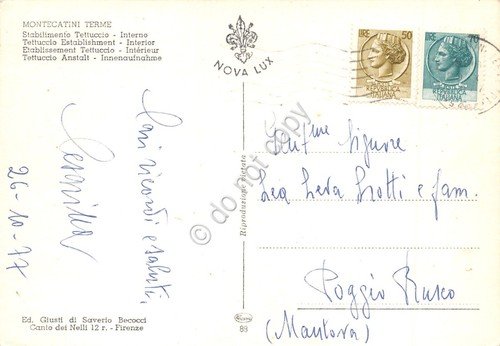 MONTECATINI TERME
Stabilimento Tettuccio - Interno
Tettuccio Establishment - Interior
Etablissement Tettuccio - Intérieur
Tettuccio Anstalt - Innenaufnahme
NOVA LUX
LIRE 50
REPUBBLICA
ITALIANA
REPUBBLICA
ITALIANA
Cari ricordi e saluti.
26-10-77
Riproduzione vietata
© do not copy
Gent.me Signore
Lea Leva e fam.
Poggio Rusco
(Mantova)
Ed. Giusti di Saverio Becocci
Canto dei Nelli 12 r. - Firenze
88